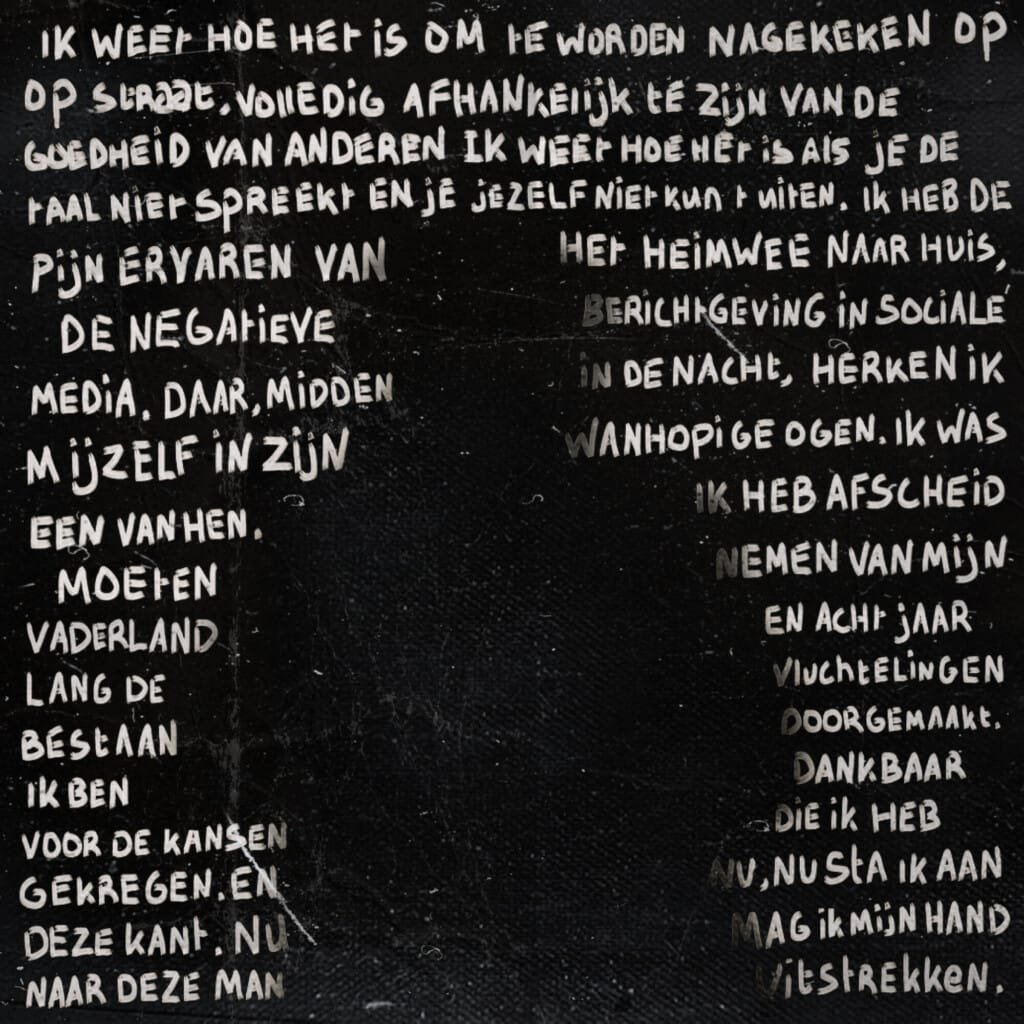 IK WEET HOE HET IS OM TE WORDEN NAGEKEKEN OP
OP STRAAT, VOLLEDIG AFHANKELIJK TE ZIJN VAN DE
GOEDHEID VAN ANDEREN IK WEET HOE HET IS ALS JE DE
TAAL NIET SPREEKT EN JE JEZELF NIET KUNT UITEN. IK HEB DE
PIJN ERVAREN VAN HET HEIMWEE NAAR HUIS,
DE NEGATIEVE BERICHTGEVING IN SOCIALE
MEDIA. DAAR, MIDDEN IN DE NACHT, HERKEN IK
MIJZELF IN ZIJN WANHOPIGE OGEN. IK WAS
EEN VAN HEN. IK HEB AFSCHEID
MOETEN NEMEN VAN MIJN
VADERLAND EN ACHT JAAR
LANG DE VLUCHTELINGEN
BESTAAN DOORGEMAAKT.
IK BEN DANKBAAR
VOOR DE KANSEN DIE IK HEB
GEKREGEN. EN NU, NU STA IK AAN
DEZE KANT. NU MAG IK MIJN HAND
NAAR DEZE MAN UITSTREKKEN.